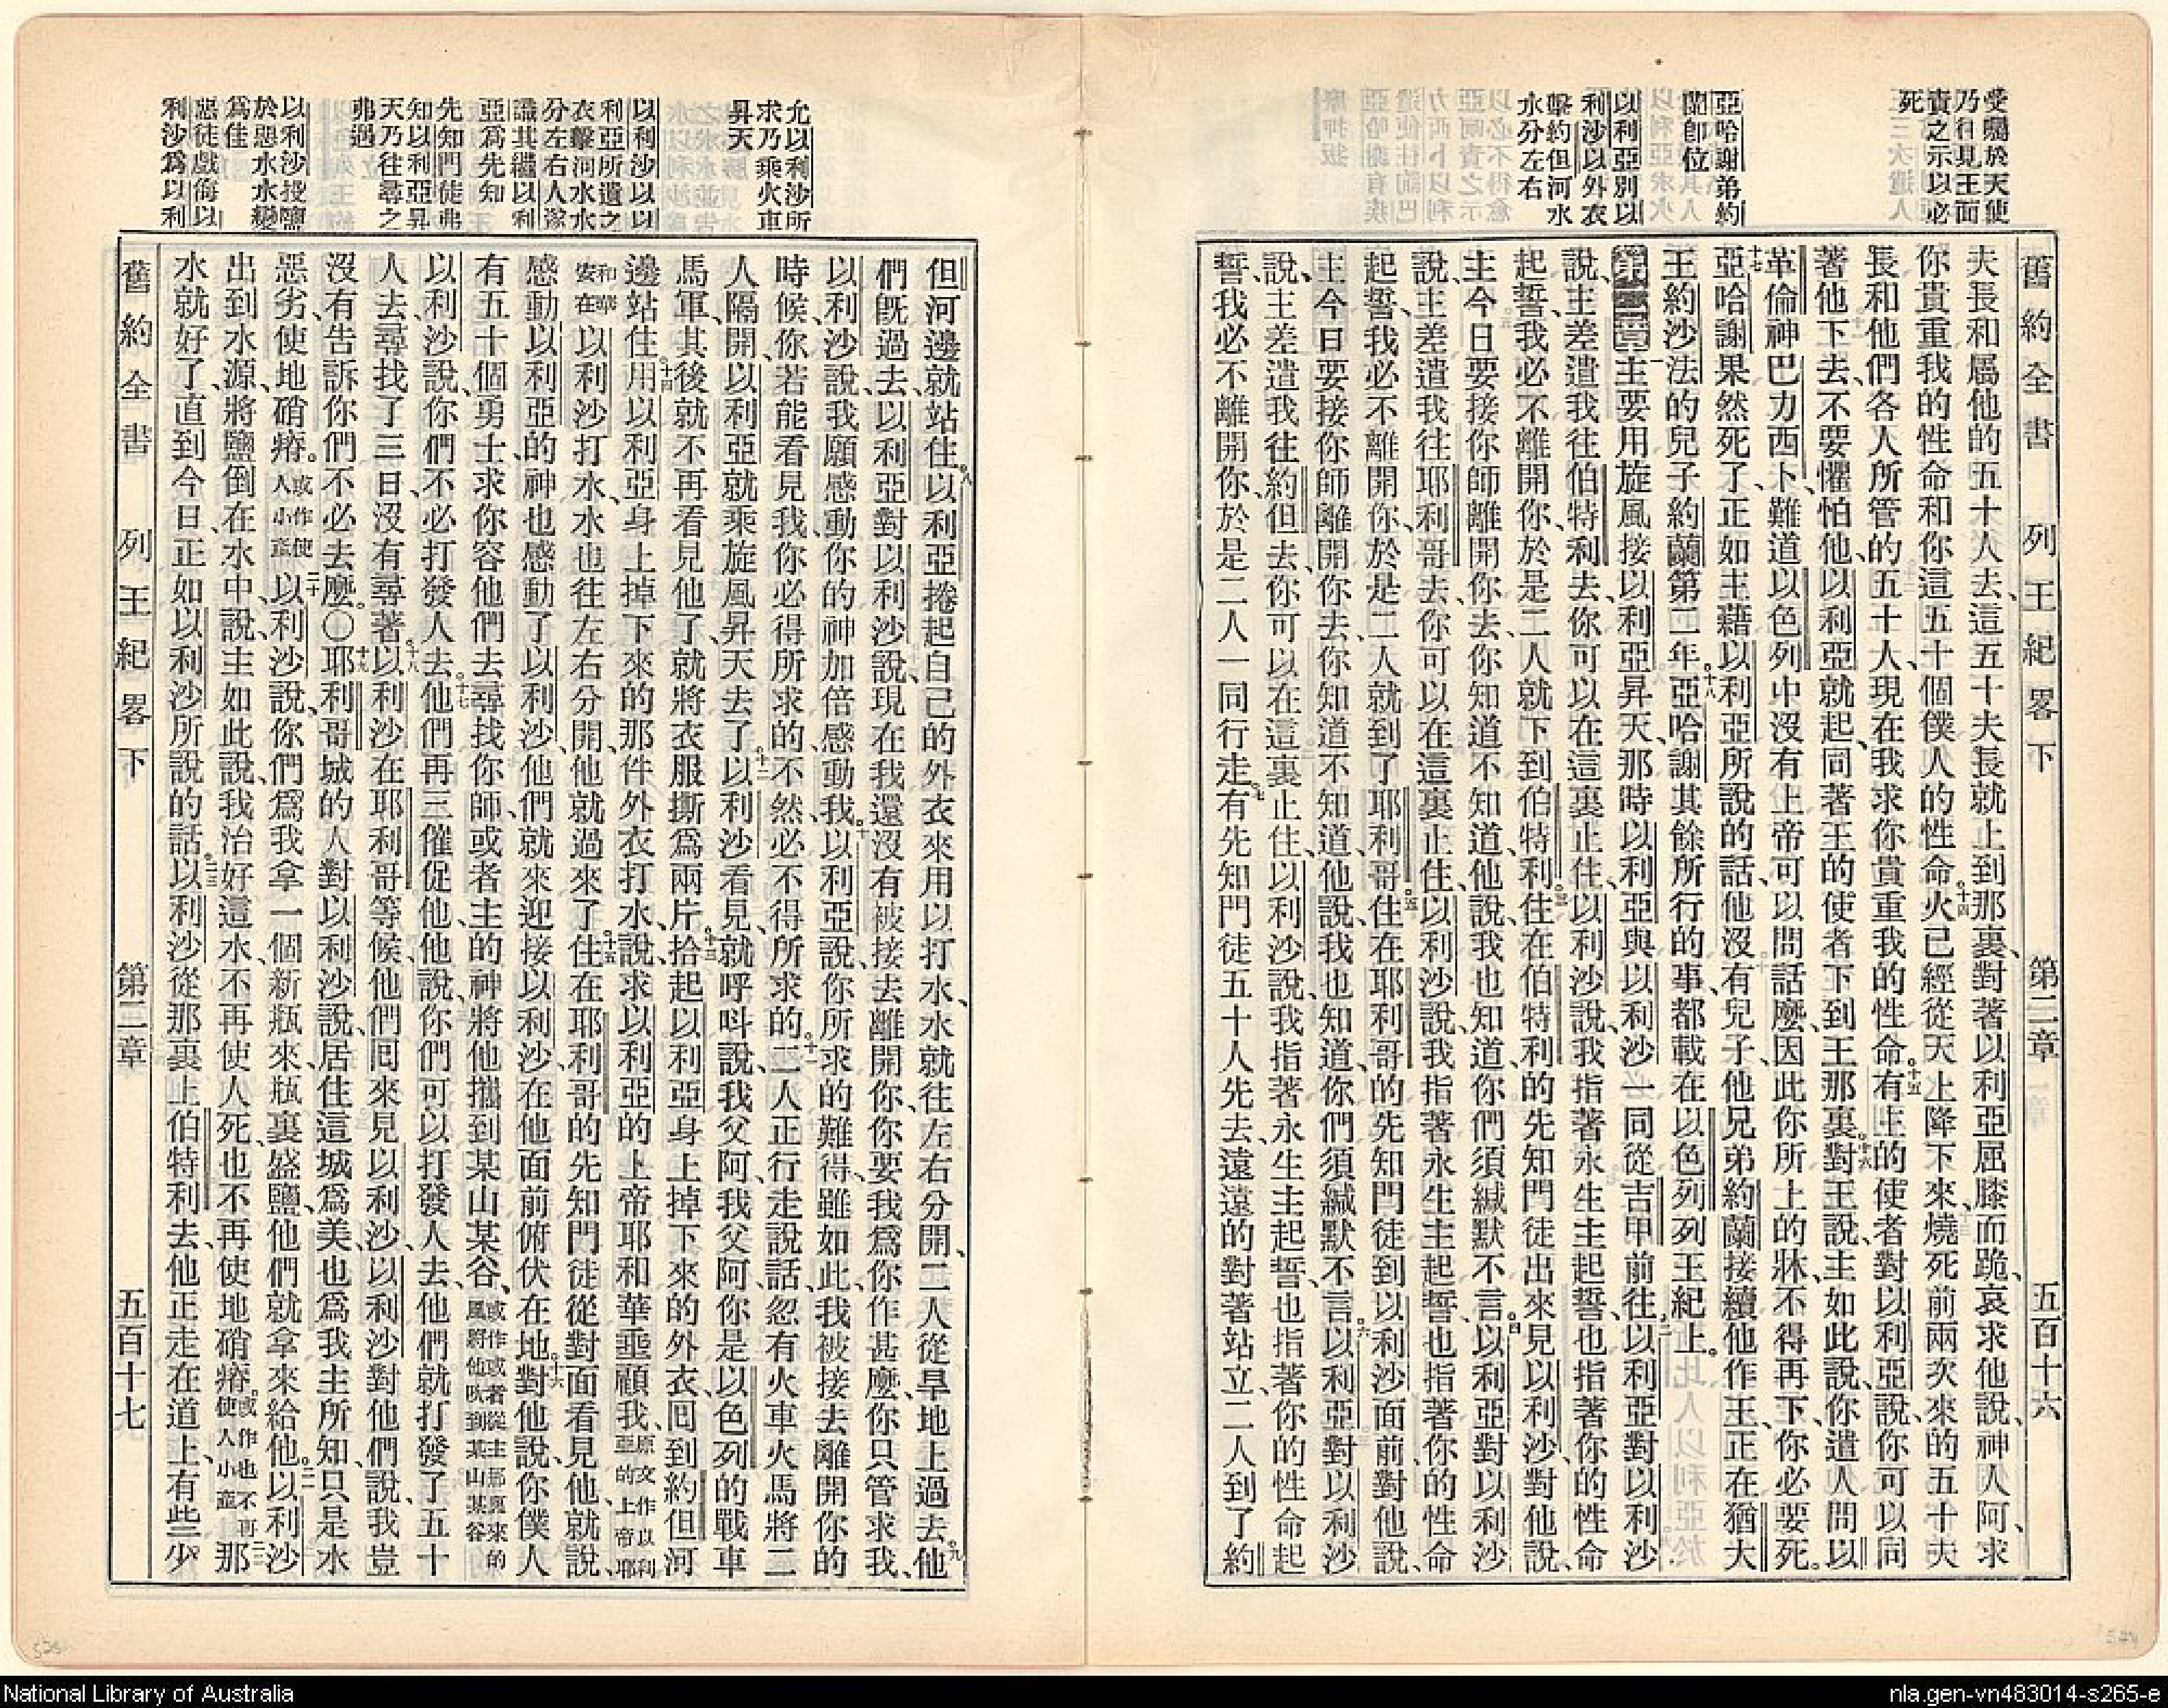 舊約全書　列王紀畧下　第二章　五百十六
受囑於天使
乃往見王面
責之示以必
死
亞哈謝弟約
蘭卽位
以利亞別以
利沙以外衣
擊約但河水
水分左右
夫長和屬他的五十人去、這五十夫長就上到那裏、對著以利亞屈膝而跪、哀求他說、神人阿、求
你貴重我的性命和你這五十個僕人的性命、十四火已經從天上降下來、燒死前兩次來的五十夫
長和他們各人所管的五十人、現在我求你貴重我的性命。十五有主的使者對以利亞說、你可以同
著他下去、不要懼怕他、以利亞就起、同著王的使者下到王那裏。十六對王說、主如此說、你遣人問以
革倫神巴力西卜、難道以色列中沒有上帝可以問話麼、因此你所上的牀不得再下、你必要死。
十七亞哈謝果然死了、正如主藉以利亞所說的話、他沒有兒子、他兄弟約蘭接續他作王、正在猶大
王約沙法的兒子約蘭第二年。十八亞哈謝其餘所行的事、都載在以色列列王紀上。
第二章一主要用旋風接以利亞昇天、那時以利亞與以利沙一同從吉甲前往。二以利亞對以利沙
說、主差遣我往伯特利去、你可以在這裏止住、以利沙說、我指著永生主起誓、也指著你的性命
起誓、我必不離開你、於是二人就下到伯特利。三住在伯特利的先知門徒出來見以利沙、對他說、
主今日要接你師離開你去、你知道不知道、他說、我也知道、你們須緘默不言。四以利亞對以利沙
說、主差遣我往耶利哥去、你可以在這裏止住、以利沙說、我指著永生主起誓、也指著你的性命
起誓、我必不離開你、於是二人就到了耶利哥。五住在耶利哥的先知門徒到以利沙面前、對他說、
主今日要接你師離開你去、你知道不知道、他說、我也知道、你們須緘默不言。六以利亞對以利沙
說、主差遣我往約但去、你可以在這裏止住、以利沙說、我指著永生主起誓、也指著你的性命起
誓、我必不離開你、於是二人一同行走。七有先知門徒五十人先去、遠遠的對著站立、二人到了約
允以利沙所
求乃乘火車
昇天
以利沙以以
利亞所遺之
衣擊河水水
分左右人遂
識其繼以利
亞爲先知
先知門徒弗
知以利亞昇
天乃往尋之
弗遇
以利沙投鹽
於惡水水變
爲佳
惡徒戲侮以
利沙爲以利
但河邊就站住。八以利亞捲起自己的外衣來用以打水、水就往左右分開、二人從旱地上過去。九他
們旣過去、以利亞對以利沙說、現在我還沒有被接去離開你、你要我爲你作甚麼、你只管求我、
以利沙說、我願感動你的神加倍感動我。十以利亞說、你所求的難得、雖如此、我被接去離開你的
時候、你若能看見我、你必得所求的、不然、必不得所求的。十一二人正行走說話、忽有火車火馬將二
人隔開、以利亞就乘旋風昇天去了。十二以利沙看見、就呼呌說、我父阿、我父阿、你是以色列的戰車
馬軍、其後就不再看見他了、就將衣服撕爲兩片。十三拾起以利亞身上掉下來的外衣、囘到約但河
邊站住。十四用以利亞身上掉下來的那件外衣打水、說、求以利亞的上帝耶和華垂顧我、原文作以利亞的上帝耶
和華安在以利沙打水、水也往左右分開、他就過來了。十五住在耶利哥的先知門徒從對面看見他、就說、
感動以利亞的神也感動了以利沙、他們就來迎接以利沙、在他面前俯伏在地。十六對他說、你僕人
有五十個勇士、求你容他們去尋找你師、或者主的神將他攜到某山某谷、或作或者從主那裏來的風將他吹到某山某谷
以利沙說、你們不必打發人去。十七他們再三催促他、他說、你們可以打發人去、他們就打發了五十
人去、尋找了三日、沒有尋著。十八以利沙在耶利哥等候、他們囘來見以利沙、以利沙對他們說、我豈
沒有告訴你們不必去麼。〇十九耶利哥城的人對以利沙說、居住這城爲美、也爲我主所知、只是水
惡劣、使地磽瘠。或作使人小產二十以利沙說、你們爲我拿一個新瓶來、瓶裏盛鹽、他們就拿來給他。二一以利沙
出到水源、將鹽倒在水中、說、主如此說、我治好這水、不再使人死、也不再使地磽瘠。或作也不再使人小產二二那
水就好了、直到今日、正如以利沙所說的話。二三以利沙從那裏上伯特利去、他正走在道上、有些少
舊約全書　列王紀畧下　第二章　五百十七
National Library of Australia
nla.gen-vn483014-s265-e